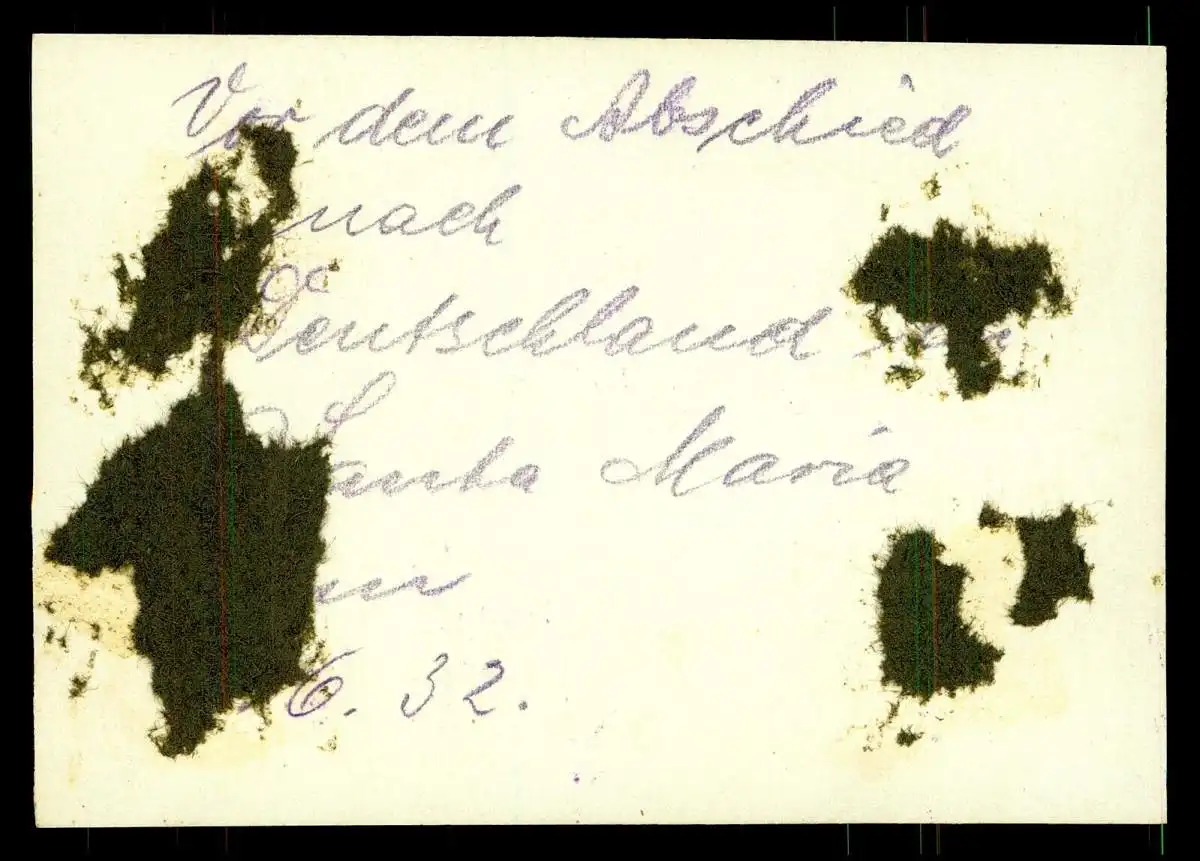 Vor dem Abschied
nach
Deutschland
Santa Maria
6. 32.